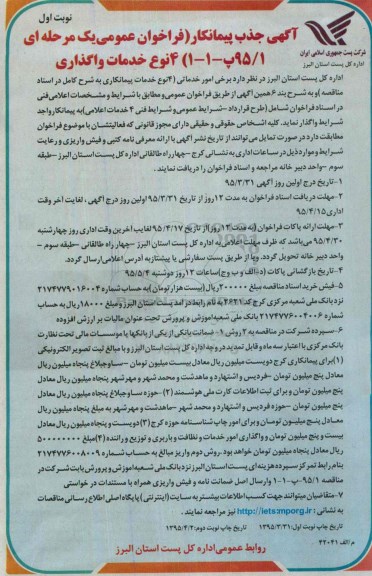 نوبت اول
آگهی جذب پیمانکار (فراخوان عمومی یک مرحله ای
۹۵/۱پ-۱-۱) ۴نوع خدمات واگذاری
شرکت پست جمهوری اسلامی ایران
اداره کل پست استان البرز
اداره کل پست استان البرز در نظر دارد برخی امور خدماتی (۴نوع خدمات پیمانکاری به شرح کامل در اسناد
مناقصه )و به شرح بند ۶همین آگهی از طریق فراخوان عمومی و مطابق با شرایط و مشخصات اعلامی فنی
در اسناد فراخوان شامل (طرح قرارداد -شرایط عمومی و شرایط فنی ۴ خدمات اعلامی)به پیمانکار واجد
شرایط واگذار نماید. کلیه اشخاص حقوقی و حقیقی دارای مجوز قانونی که فعالیتشان با موضوع فراخوان
مطابقت دارد در صورت تمایل می توانند از تاریخ نشر آگهی با ارائه معرفی نامه کتبی و فیش واریزی و رعایت
شرایط و موارد ذیل در ساعات اداری به نشانی کرج -چهارراه طالقانی اداره کل پست استان البرز -طبقه
سوم -واحد دبیر خانه مراجعه و اسناد فراخوان را دریافت نمایند .
۱-تاریخ درج اولین روز آگهی ۹۵/۳/۳۱
۲-مهلت دریافت اسناد فراخوان به مدت ۱۲روز از تاریخ ۹۵/۳/۳۱ اولین روز درج آگهی ، لغایت آخر وقت
اداری ۹۵/۴/۱۵
۳-مهلت ارائه پاکات فراخوان (به مدت ۱۲روز)از تاریخ ۹۵/۴/۱۷ لغایت آخرین وقت اداری روز چهارشنبه
۹۵/۴/۳۰ می باشد که ظرف مهلت اعلامی به اداره کل پست استان البرز -چهار راه طالقانی -طبقه سوم -
واحد دبیر خانه تحویل گردد. ویا از طریق پست سفارشی یا پیشتاز به آدرس اعلامی ارسال گردد.
۴-تاریخ بازگشائی پاکات (د-الف و ب و ج)ساعات ۱۲روز دوشنبه ۹۵/۵/۴
۵-فیش خرید اسناد مناقصه مبلغ ۲۰۰۰۰۰ریال (بیست هزار تومان)به حساب شماره ۲۱۷۴۷۷۹۰۱۶۰۰۴
نزد بانک ملی شعبه مرکزی کرج کد ۲۶۲۱ به نام رابط درآمد پست استان البرز و مبلغ ۱۸۰۰۰ریال به حساب
شماره ۲۱۷۴۷۷۶۰۰۴۰۰۶ بانک ملی شعبه آموزش و پرورش تحت عنوان مالیات بر ارزش افزوده
۶-سپرده شرکت در مناقصه به ۲ روش ۱- ضمانت بانکی از یکی از بانکها یا موسسات مالی تحت نظارت
بانک مرکزی با اعتبار سه ماه و قابل تمدید در وجه اداره کل پست استان البرز و با مبالغ ثبت تصویر الکترونیکی
(۱)برای پیمانکاری کرج دویست میلیون ریال معادل بیست میلیون تومان -ساوجبلاغ پنجاه میلیون ریال
معادل پنج میلیون تومان -فردیس و اشتهارد و ماهدشت و محمد شهر و مهرشهر پنجاه میلیون ریال معادل
پنج میلیون تومان و برای ثبت اطلاعات کارت ملی هوشمند (۲) -حوزه ساوجبلاغ پنجاه میلیون ریال معادل
پنج میلیون تومان -حوزه فردیس و اشتهارد و محمد شهر -ماهدشت و مهرشهر به مبلغ پنجاه میلیون ریال
معادل پنج میلیون تومان و برای امور چاپ شناسنامه حوزه کرج (۳)دویست و پنجاه میلیون ریال معادل
بیست و پنج میلیون تومان و واگذاری امور خدمات و نظافت و باربری و توزیع و راننده (۴)مبلغ ۵۰۰۰۰۰۰۰۰
ریال معادل پنجاه میلیون تومان خواهد بود. روش دوم واریز مبالغ به حساب شماره ۲۱۷۴۷۷۶۰۰۸۰۰۹
بنام رابط تمرکز سپرده هزینه ای پست استان البرز نزد بانک ملی شعبه آموزش و پرورش بابت شرکت در
مناقصه ۹۵/۱پ-۱-۱ وارسال اصل ضمانت نامه و فیش واریزی همراه با مستندات در خواستی
۷-متقاضیان میتوانند جهت کسب اطلاعات بیشتر به سایت (اینترنتی) پایگاه اصلی اطلاع رسانی مناقصات
به نشانی : http://iets.mporg.ir نیز مراجعه نمایند .
تاریخ چاپ نوبت اول:۱۳۹۵/۳/۳۱ تاریخ چاپ نوبت دوم:۱۳۹۵/۴/۲
م الف ۴۲۰۴۱
روابط عمومی اداره کل پست استان البرز